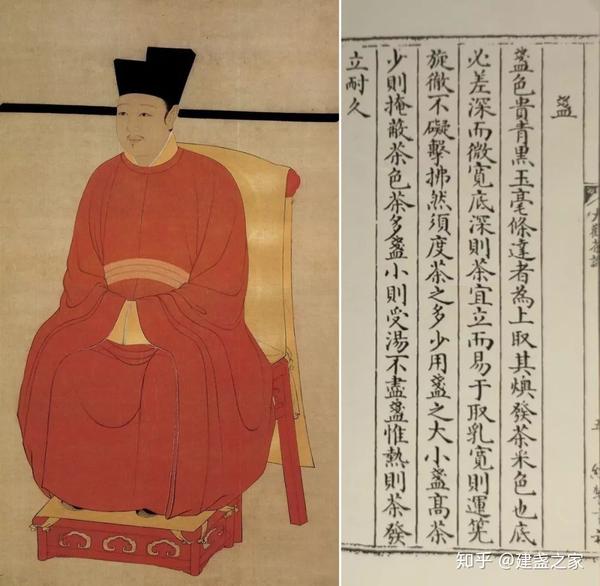 大觀茶論
五
盞
盞色貴青黑玉毫條達者為上取其燠發茶采色也底
必差深而微寬底深則茶宜立而易于取乳寬則運筅
旋徹不礙擊拂然須度茶之多少用盞之大小盞高茶
少則掩蔽茶色茶多盞小則受湯不盡盞惟熱則茶發
立耐久
知乎 @建盏之家